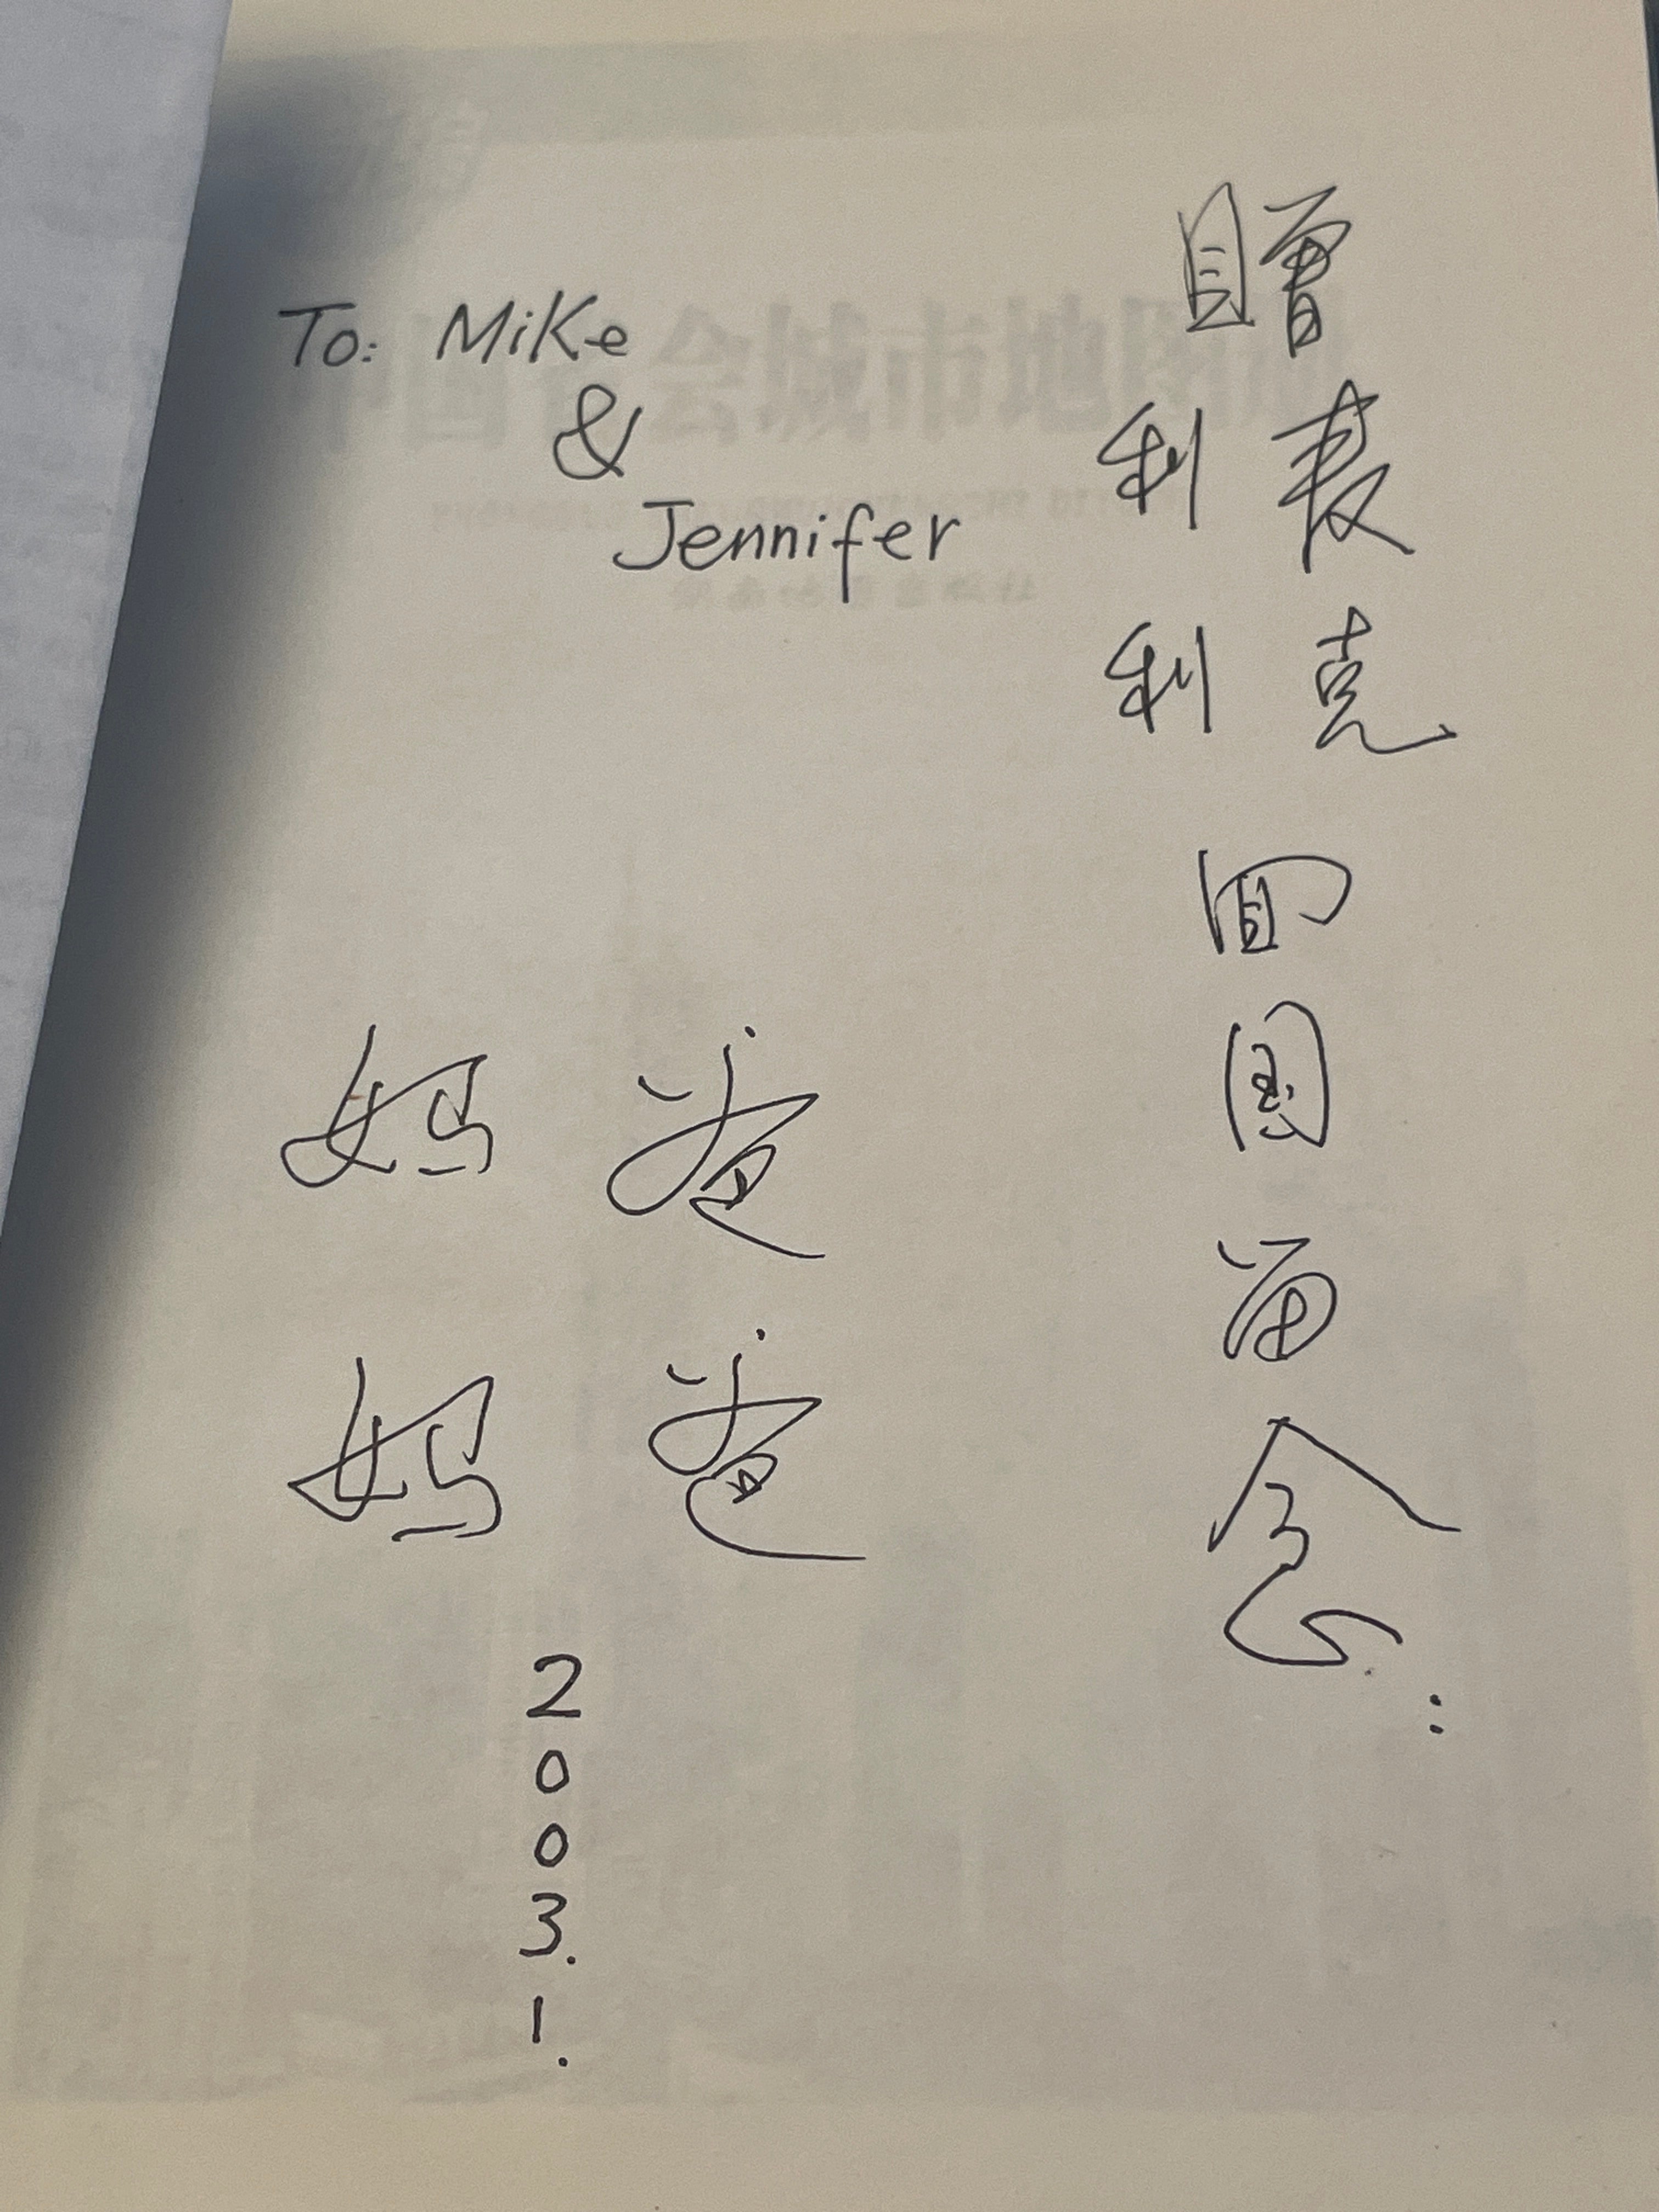 To: Mike
&
Jennifer
贈
麦克
利利
回国留念:
爸爸
妈妈
2003.1.